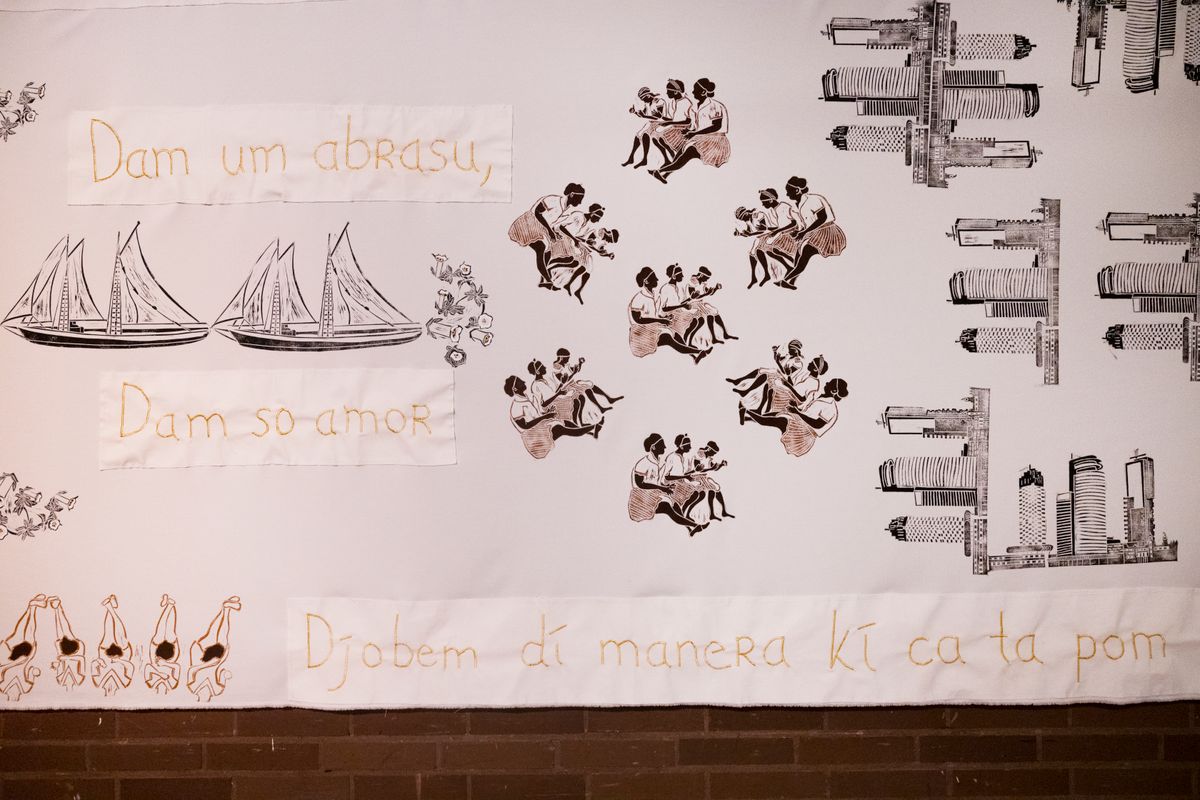 Dam um abrasu,
Dam so amor
Djobem dí manera kí ca ta pom